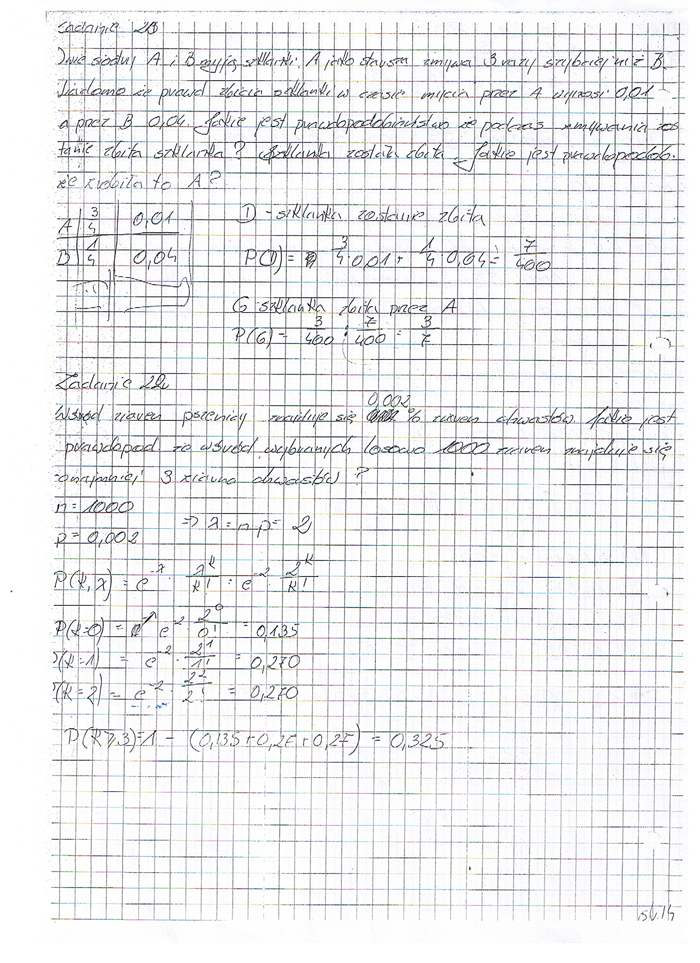 Zadanie 21
Dwie siostry A i B myją szklanki. A jako starsza zmywa 3 razy szybciej niż B.
Wiadomo że prawd zbicia szklanki w czasie mycia przez A wynosi 0,01
a przez B 0,04. Jakie jest prawdopodobieństwo że podczas zmywania zos
tanie zbita szklanka? Szklanka została zbita. Jakie jest prawdopodob.
że zrobiła to A?
A 3/4 0,01 D - szklanka zostanie zbita
B 1/4 0,04 P(D) = 3/4 · 0,01 + 1/4 · 0,04 = 7/400
G - szklanka zbita przez A
P(G) = 3/400 : 7/400 = 3/7
Zadanie 22
0,002
Wśród ziaren pszenicy znajduje się % ziaren chwastów Jakie jest
prawdopod że wśród wybranych losowo 1000 ziaren znajduje się
conajmniej 3 ziarna chwastów?
n = 1000
p = 0,002 => λ = n p = 2
P(k, λ) = e^-λ · λ^k/k! = e^-2 · 2^k/k!
P(k=0) = e^-2 · 2^0/0! = 0,135
P(k=1) = e^-2 · 2^1/1! = 0,270
P(k=2) = e^-2 · 2^2/2! = 0,270
P(k≥3) = 1 - (0,135+0,27+0,27) = 0,325
str. 14